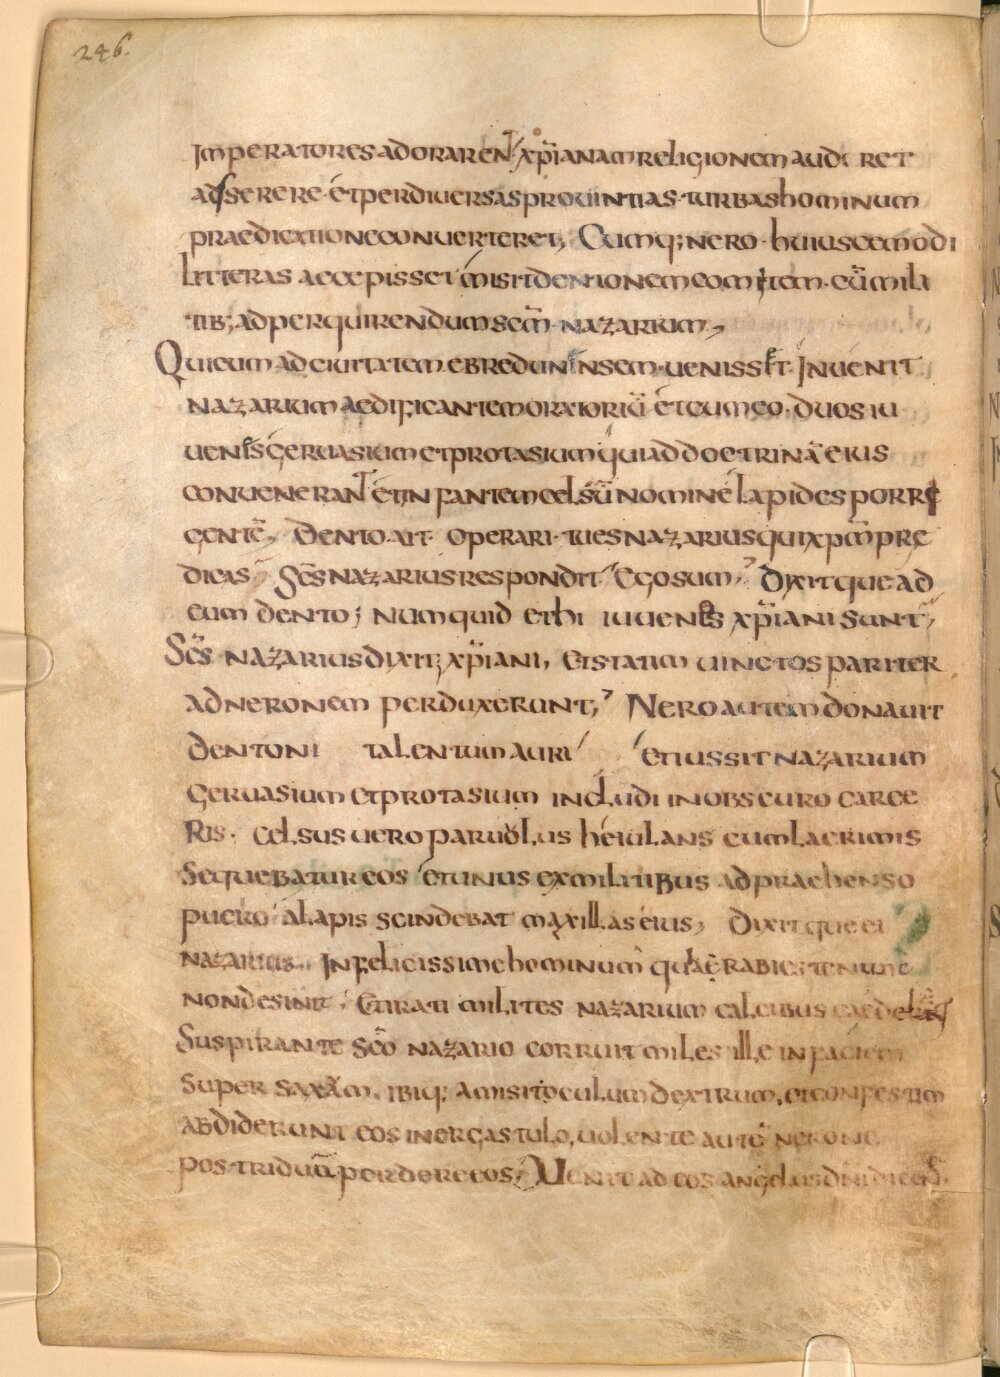 246.
imperatores adorarent xp̃ianam religionem aude ret
adserere et per diuersas prouintias turbas hominum
praedicatione conuerteret, Cumq; nero huiuscemodi
litteras accepisset misit dentonem comitem cũ mili
tib; ad perquirendum scm̃ nazarium,
Qui cum ad ciuitatem ebredunensem uenisset Inuenit
nazarium aedificantem oratoriũ et cum eo duos iu
uenes geruasium et protasium qui ad doctrinã eius
conuenerant et infantem celsũ nomine lapides porri
gentẽ, Dento ait operari tu es nazarius qui xpm̃ pre
dicas Scs̃ nazarius respondit Ego sum, Dixitque ad
eum dento; numquid et hi iuuenes xp̃iani sunt,
Scs̃ nazarius dixit; xp̃iani, et statim uinctos pariter
ad neronem perduxerunt, Nero autem donauit
dentoni talentum auri et iussit nazarium
Geruasium et protasium includi in obscuro carce
Ris. celsus uero paruolus heiulans cum lacrimis
sequebatur eos et unus ex militibus adpraehenso
puero alapis scindebat maxillas eius, Dixitque ei
nazarius. Infelicissime hominum quae rabies te
non desinit, Et irati milites nazarium calcibus
Suspirante scõ nazario corruit miles ille in faciem
super saxum. ibiq; amisit oculum dextrum, et confestim
abdiderunt eos in ergastulo, uolente autẽ nerone
pos triduũ perdere eos, Uenit ad eos angelus dñi dicens